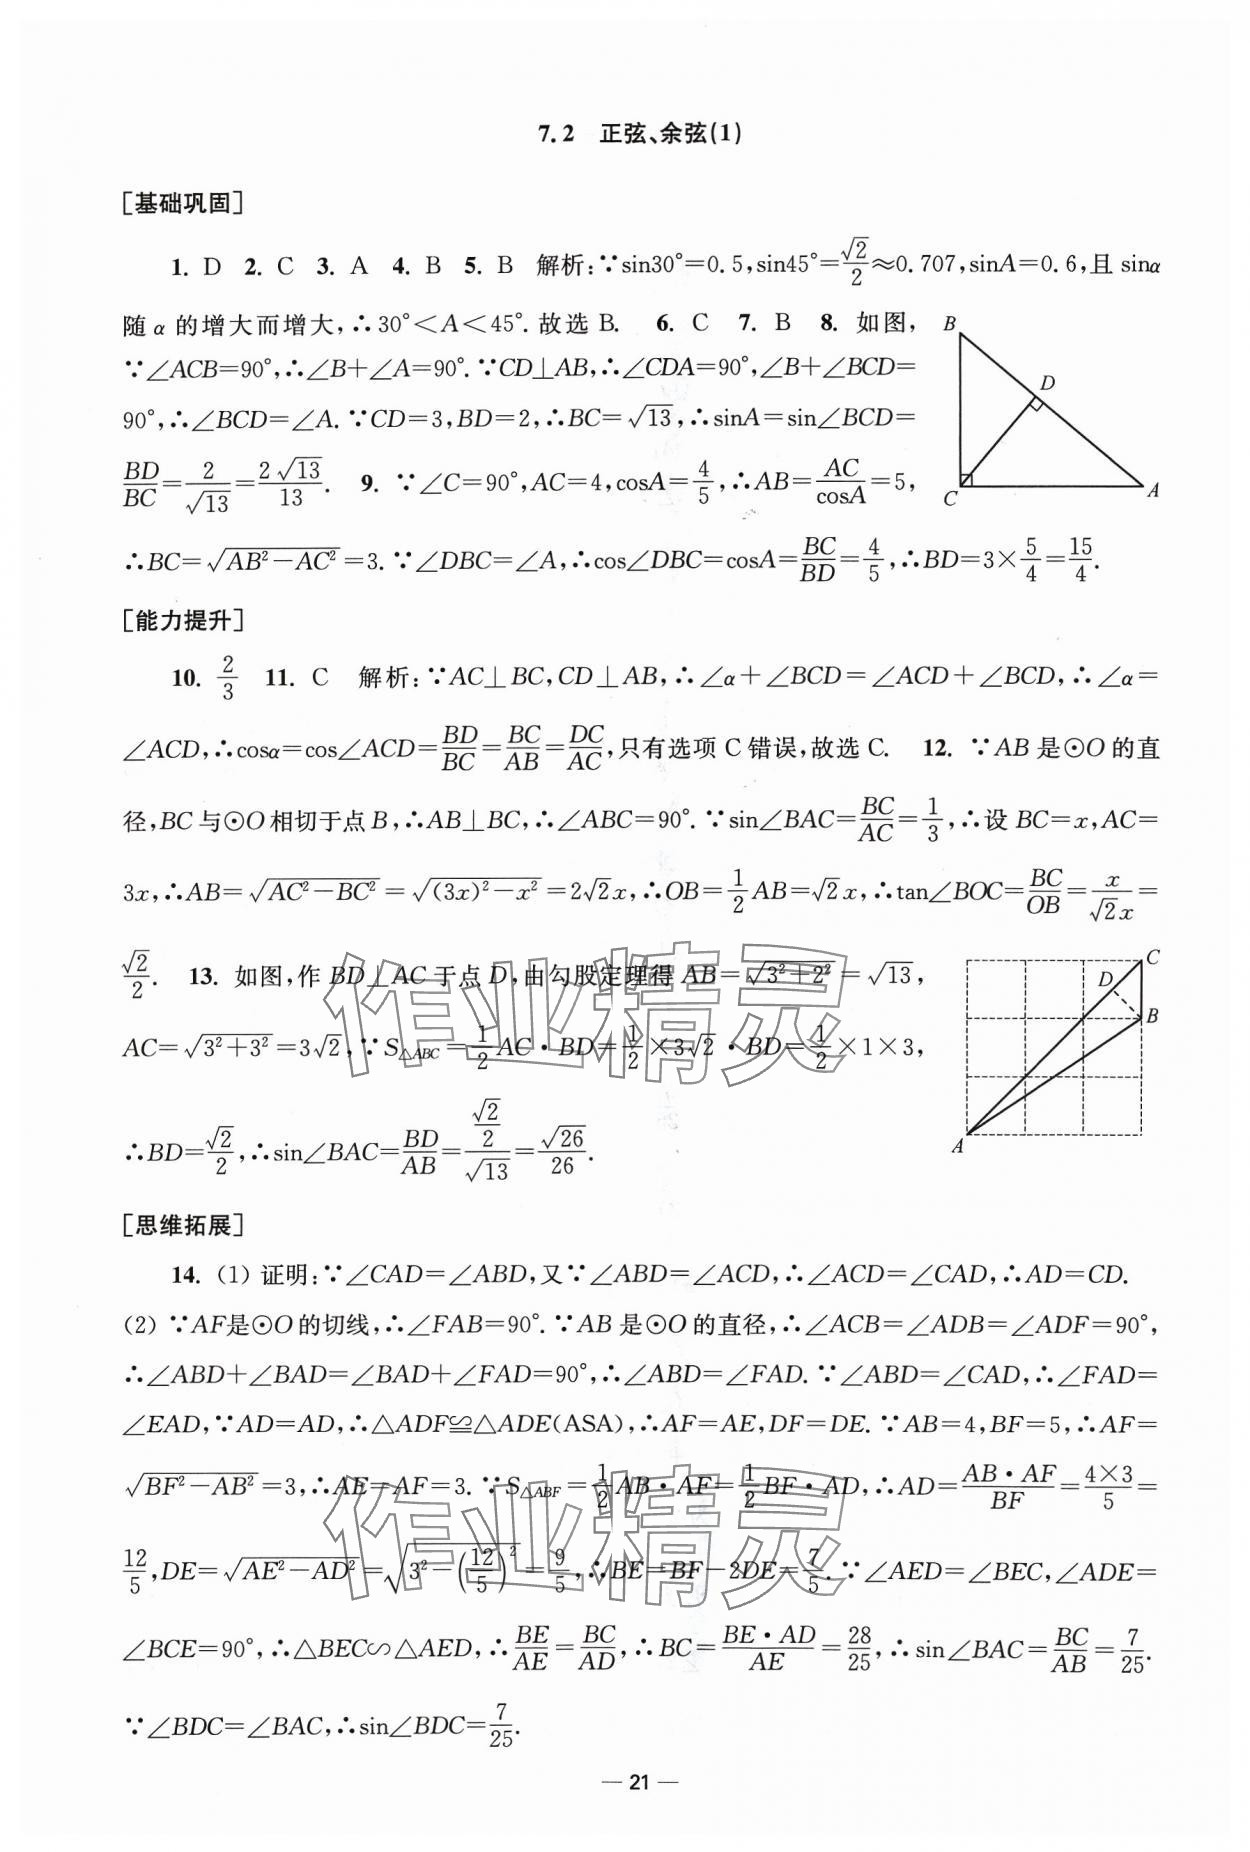 7.2 正弦、余弦(1)
[基础巩固]
1. D 2. C 3. A 4. B 5. B 解析:∵sin30°=0.5,sin45°=√2/2≈0.707,sinA=0.6,且 sinα
随 α 的增大而增大,∴30°<A<45°.故选 B. 6. C 7. B 8. 如图,
∵∠ACB=90°,∴∠B+∠A=90°.∵CD⊥AB,∴∠CDA=90°,∠B+∠BCD=
90°,∴∠BCD=∠A.∵CD=3,BD=2,∴BC=√13,∴sinA=sin∠BCD=
BD/BC=2/√13=2√13/13. 9. ∵∠C=90°,AC=4,cosA=4/5,∴AB=AC/cosA=5,
∴BC=√(AB²-AC²)=3.∵∠DBC=∠A,∴cos∠DBC=cosA=BC/BD=4/5,∴BD=3×5/4=15/4.
B
D
C
A
[能力提升]
10. 2/3 11. C 解析:∵AC⊥BC,CD⊥AB,∴∠α+∠BCD=∠ACD+∠BCD,∴∠α=
∠ACD,∴cosα=cos∠ACD=BD/BC=BC/AB=DC/AC,只有选项 C 错误,故选 C. 12. ∵AB 是⊙O 的直
径,BC 与⊙O 相切于点 B,∴AB⊥BC,∴∠ABC=90°.∵sin∠BAC=BC/AC=1/3,∴设 BC=x,AC=
3x,∴AB=√(AC²-BC²)=√((3x)²-x²)=2√2x,∴OB=1/2AB=√2x,∴tan∠BOC=BC/OB=x/√2x=
√2/2. 13. 如图,作 BD⊥AC 于点 D,由勾股定理得 AB=√(3²+2²)=√13,
AC=√(3²+3²)=3√2,∵S△ABC=1/2AC·BD=1/2×3√2·BD=1/2×1×3,
∴BD=√2/2,∴sin∠BAC=BD/AB=(√2/2)/√13=√26/26.
C
D
B
A
[思维拓展]
14. (1) 证明:∵∠CAD=∠ABD,又∵∠ABD=∠ACD,∴∠ACD=∠CAD,∴AD=CD.
(2) ∵AF是⊙O 的切线,∴∠FAB=90°.∵AB 是⊙O 的直径,∴∠ACB=∠ADB=∠ADF=90°,
∴∠ABD+∠BAD=∠BAD+∠FAD=90°,∴∠ABD=∠FAD.∵∠ABD=∠CAD,∴∠FAD=
∠EAD,∵AD=AD,∴△ADF≌△ADE(ASA),∴AF=AE,DF=DE.∵AB=4,BF=5,∴AF=
√(BF²-AB²)=3,∴AE=AF=3.∵S△ABF=1/2AB·AF=1/2BF·AD,∴AD=AB·AF/BF=4×3/5=
12/5,DE=√(AE²-AD²)=√(3²-(12/5)²)=9/5,∴BE=BF-2DE=7/5.∵∠AED=∠BEC,∠ADE=
∠BCE=90°,∴△BEC∽△AED,∴BE/AE=BC/AD,∴BC=BE·AD/AE=28/25,∴sin∠BAC=BC/AB=7/25.
∵∠BDC=∠BAC,∴sin∠BDC=7/25.
作业精灵
作业精灵
— 21 —